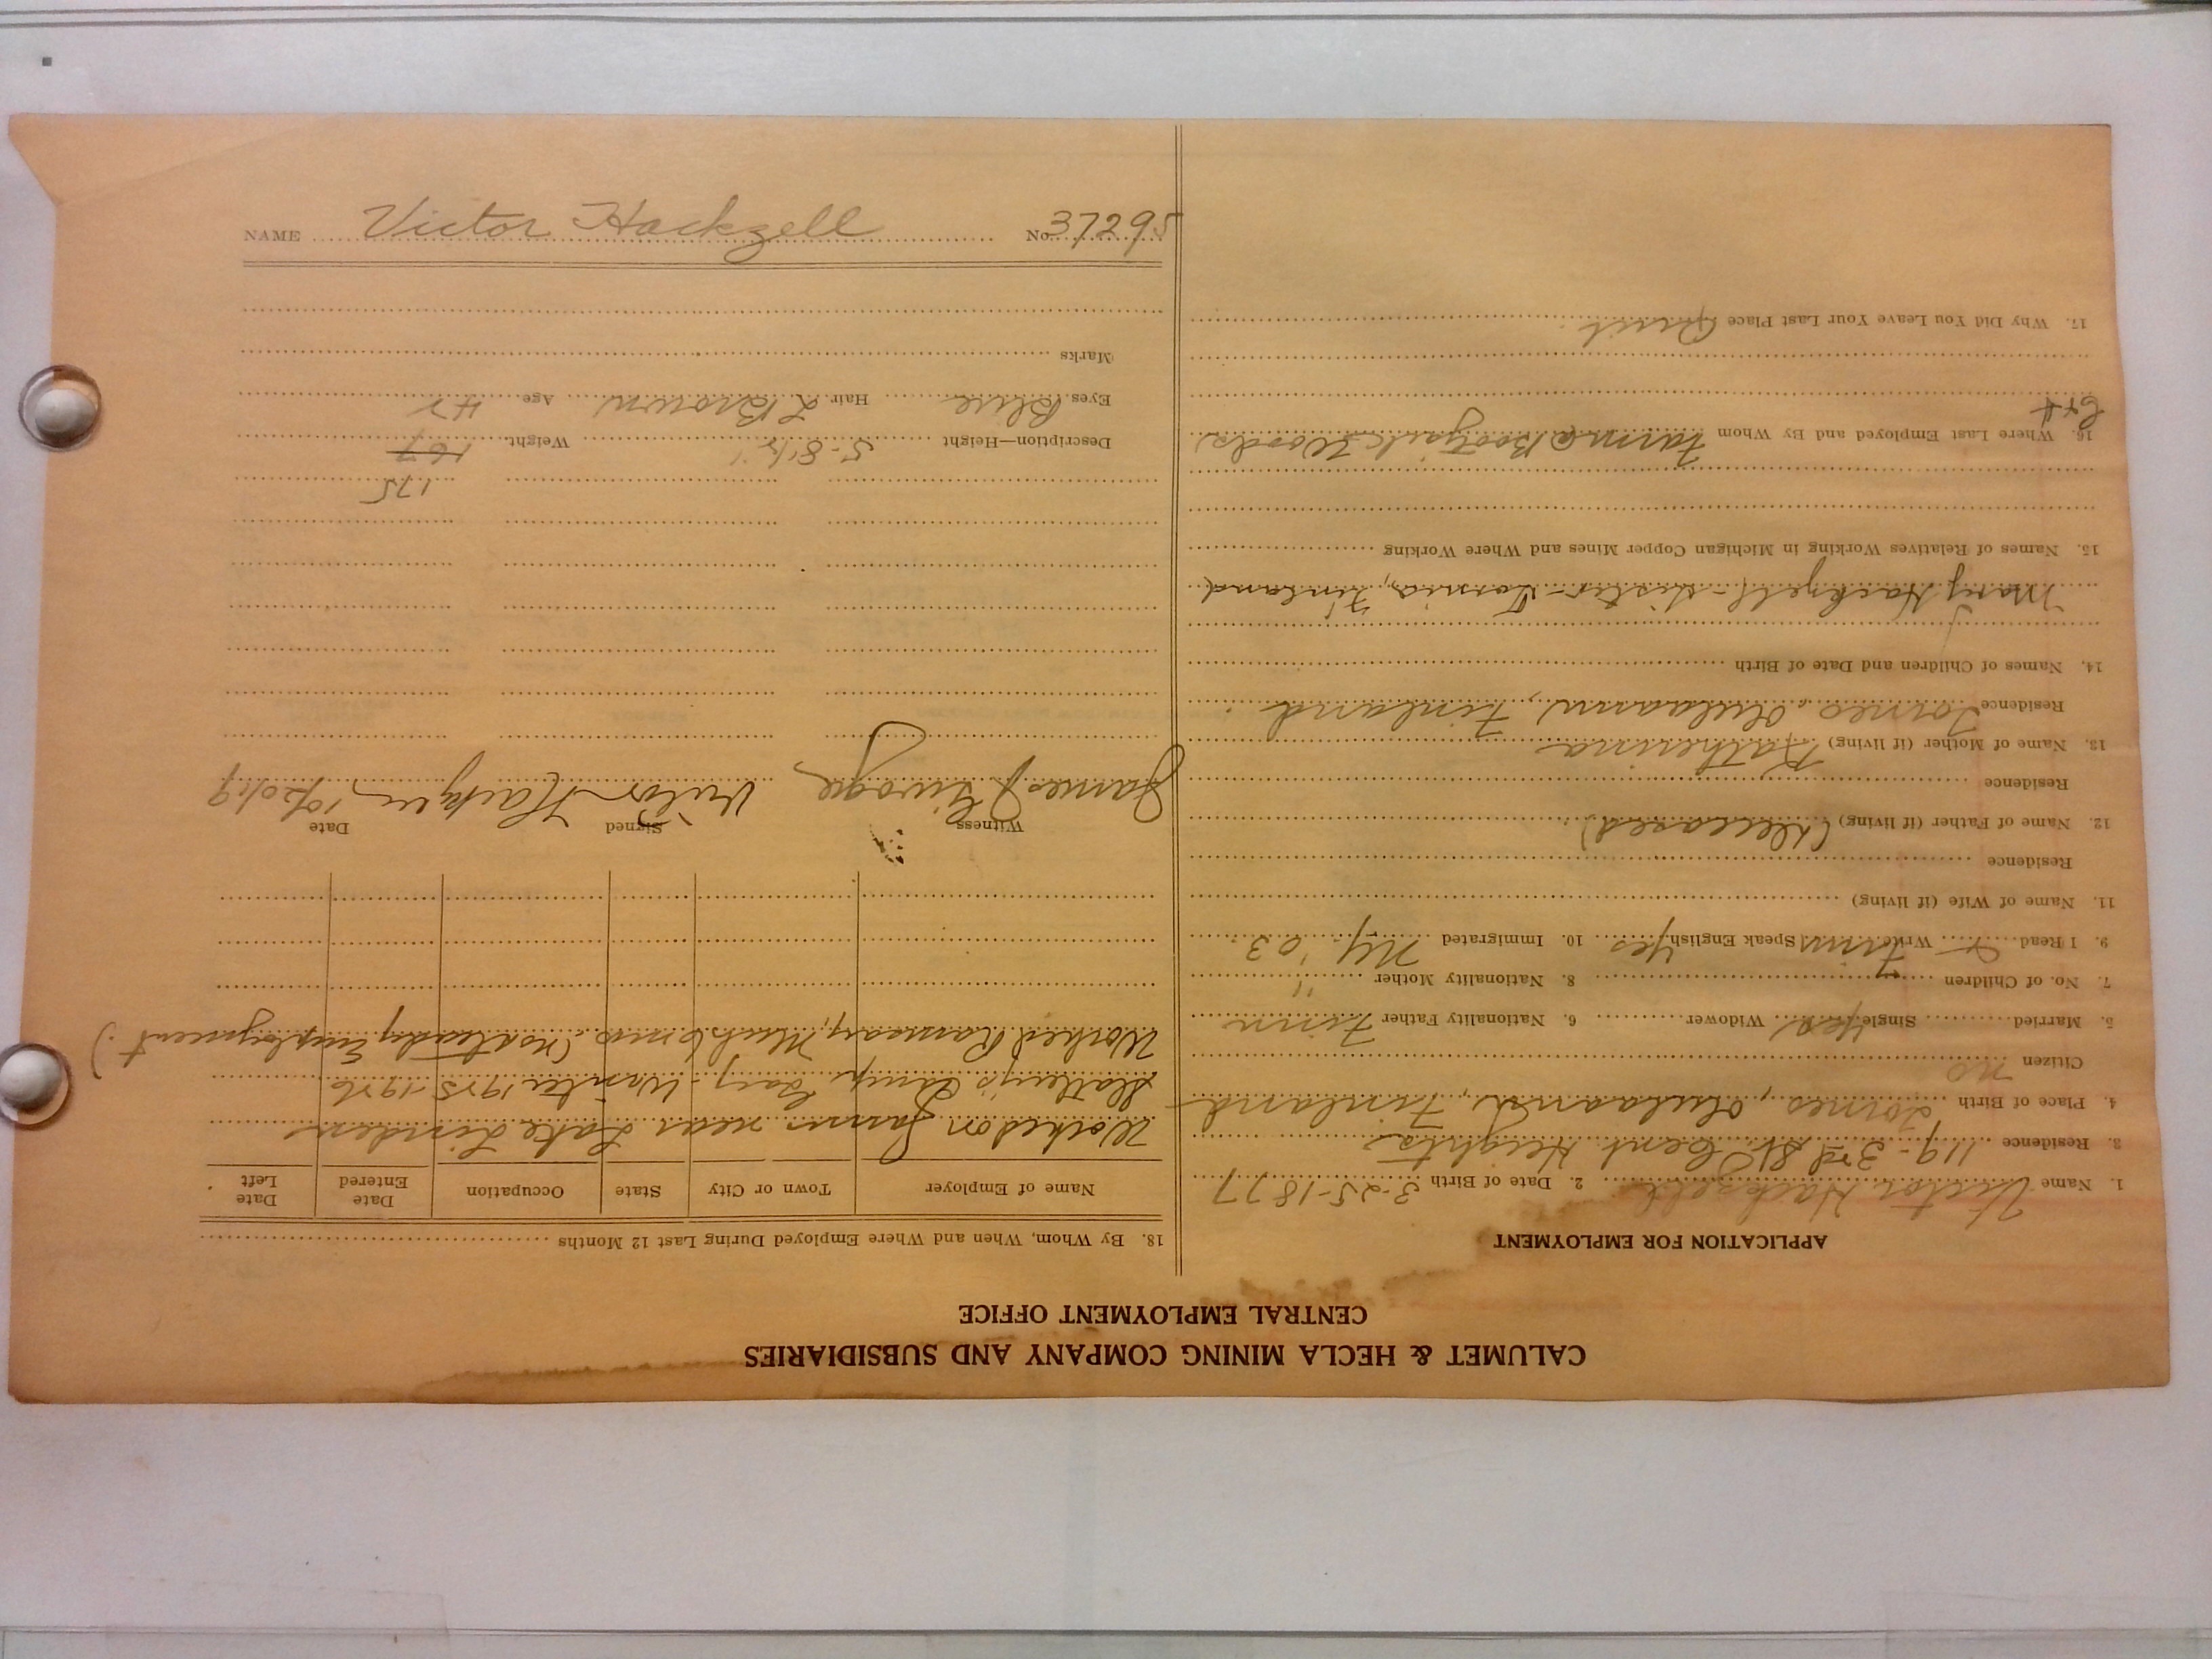 CALUMET & HECLA MINING COMPANY AND SUBSIDIARIES
CENTRAL EMPLOYMENT OFFICE
APPLICATION FOR EMPLOYMENT
1. Name Victor Hackzell 2. Date of Birth 3-25-1877
3. Residence 119-3rd St. Cent. Heights
4. Place of Birth Torneo, Oulaanu, Finland
Citizen no
5. Married Single Yes Widower 6. Nationality Father Finn
7. No. of Children 8. Nationality Mother "
9. I Read & Write Finn Speak English Yes 10. Immigrated NY. '03
11. Name of Wife (if living)
Residence
12. Name of Father (if living) (Deceased)
Residence
13. Name of Mother (if living) Katherina
Residence Torneo, Oulaanu, Finland
14. Names of Children and Date of Birth
Mary Hackzell - sister - Tornio, Finland
15. Names of Relatives Working in Michigan Copper Mines and Where Working
16. Where Last Employed and By Whom Farm @ Woods
17. Why Did You Leave Your Last Place Quit
18. By Whom, When and Where Employed During Last 12 Months
Name of Employer Town or City State Occupation Date Entered Date Left
Worked on farms near Lake Linden
Camp Winter 1925-1926
Worked Ramsay, Mich 6 mos. (no steady Employment.)
Witness Signed Date
James Victor Hackzell
175
Description—Height 5-8½" Weight 167
Eyes Blue Hair L Brown Age
Marks
NAME Victor Hackzell No. 37295